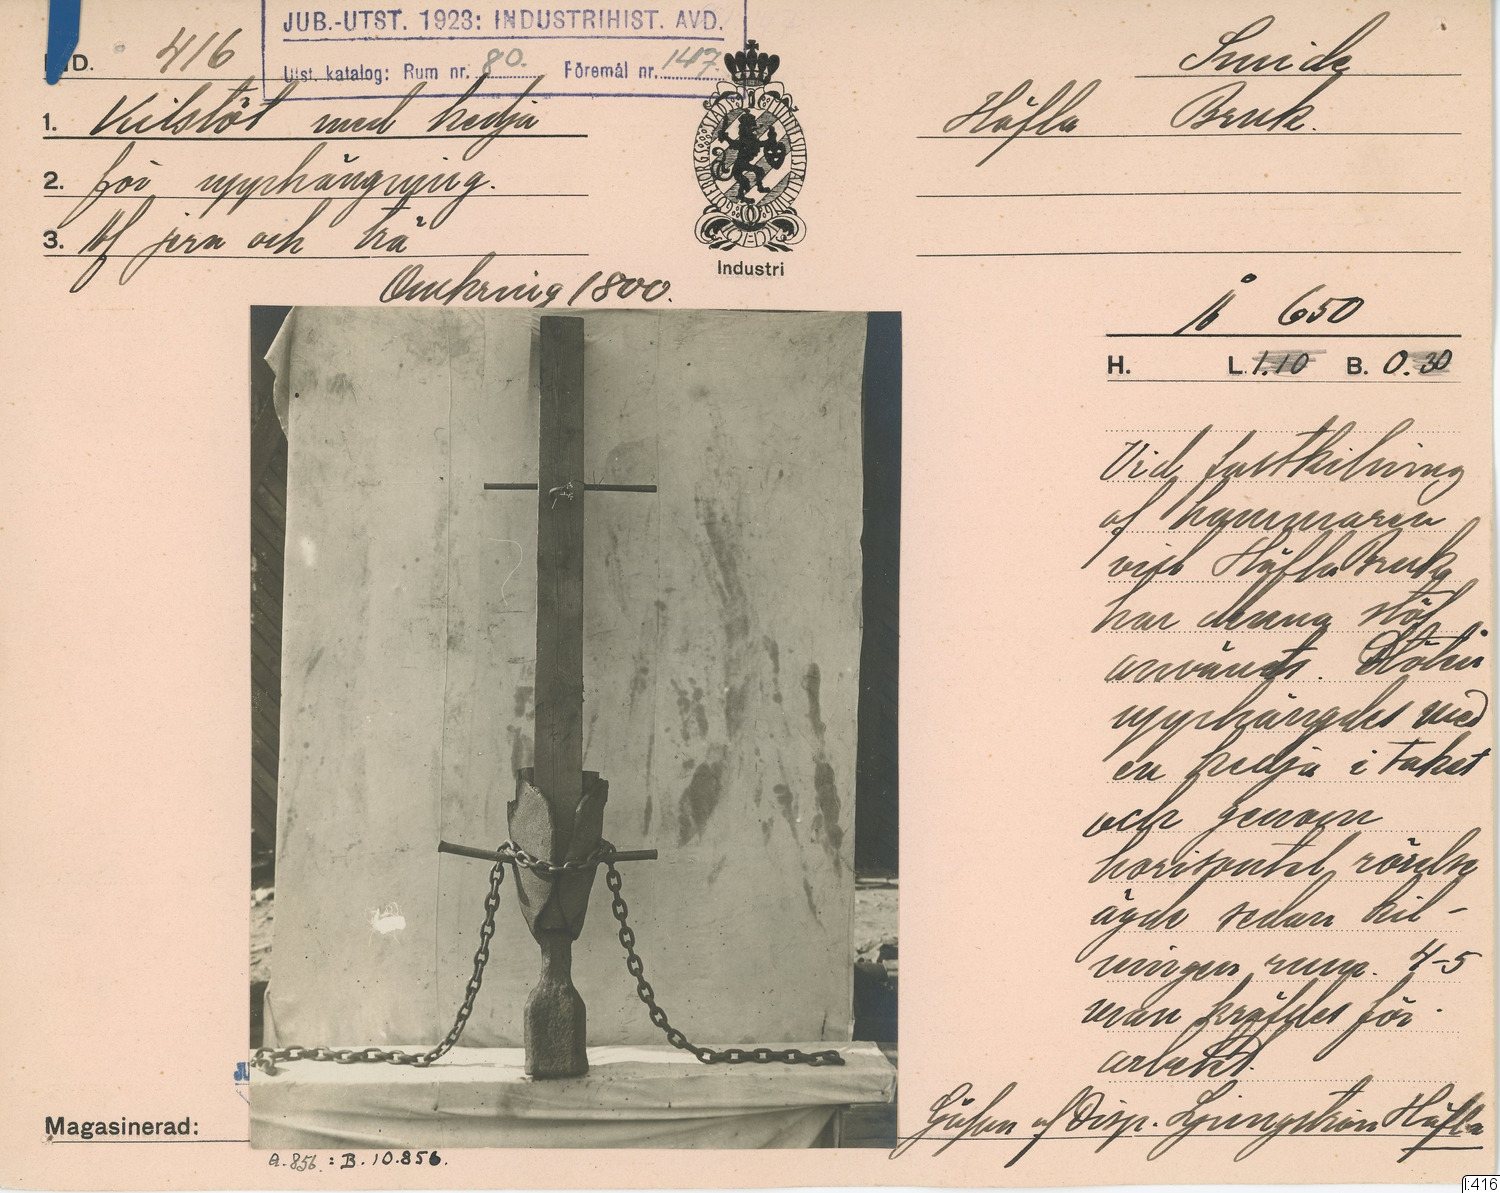 JUB.-UTST. 1923: INDUSTRIHIST. AVD.
Utst. katalog: Rum nr. 80. Föremål nr. 147.
IND. 416
1. Kilstöt med kedja
2. för upphängning.
3. Af jern och trä
Omkring 1800.
GÖTEBORGS STADS MINNESUTSTÄLLNING
Industri
Smide
Häfla Bruk.
Å 650
H. L. 1.10 B. 0.30
Vid fastkilning
af hammaren
vid Häfla Bruk
har denna stöt
använts. Stöten
upphängdes med
en kedja i taket
och genom
horisontel rörelse
ägde sedan kil-
ningen rum. 4-5
man kräfdes för
arbetet.
Gåfva af Disp. Ljungström Häfla
Magasinerad:
a. 856 : B. 10.856.
I:416